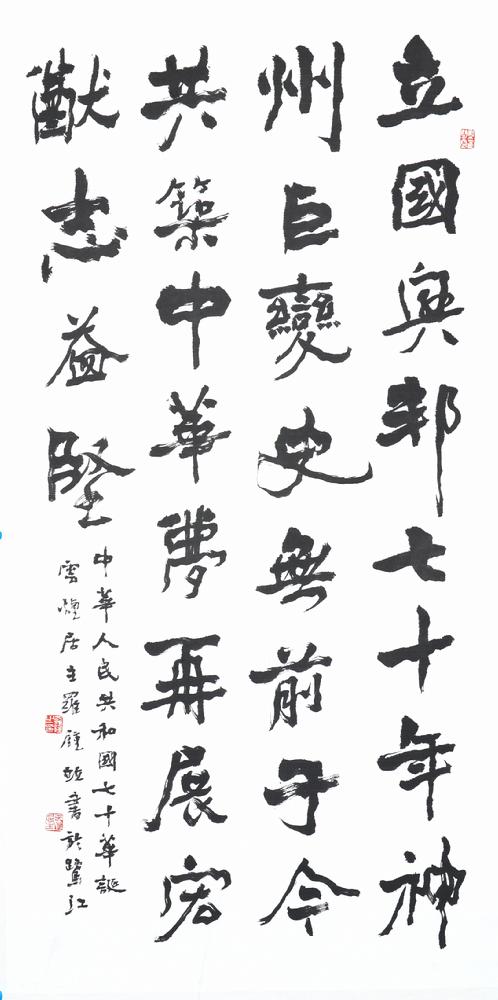 立國興邦七十年神
州巨變史無前于今
共築中華夢再展宏
猷志益堅
中華人民共和國七十華誕
雪煙居主羅鍾 書於鷺江